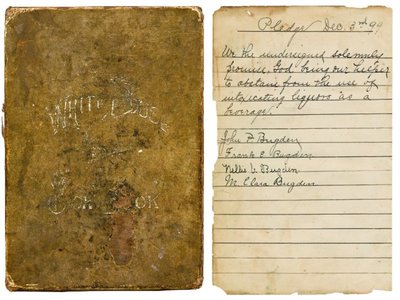 WHITE HOUSE
COOK BOOK
Pledge Dec. 3rd 99
We the undersigned solemnly
promise, God being our helper
to abstain from the use of
intoxicating liquors as a
beverage.
John P. Bugden
Frank E. Bugden
Nellie V. Bugden
M. Clara Bugden